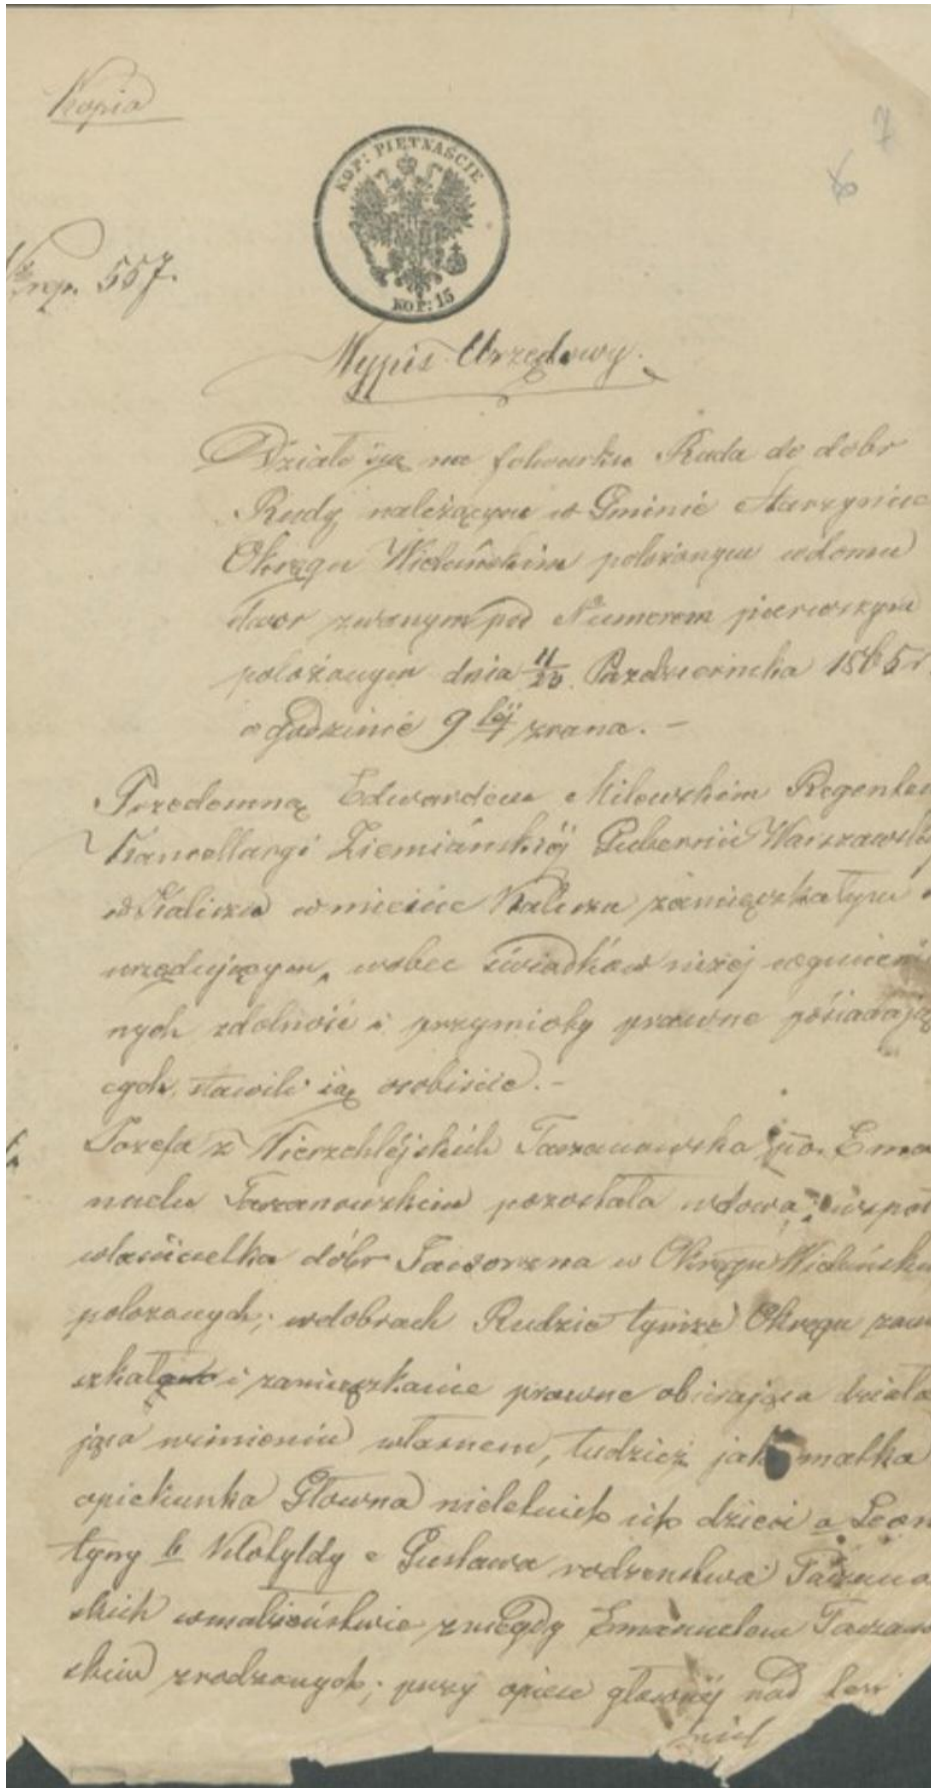 Kopia
7
KOP: PIĘTNAŚCIE
KOP: 15
Nrep. 557.
Wypis Urzędowy.
Działo się na folwarku Ruda do dobr
Rudy należącym w Gminie Starzenice
Okręgu Wieluńskim położonym w domu
dwor zwanym pod Numerem pierwszym
położonym dnia 11/23 Października 1865 r
o godzinie 9tej zrana. –
Przedemną Edwardem Milewskim Regentem
Kancellaryi Ziemiańskiej Gubernii Warszawskiej
w Kaliszu w mieście Kaliszu zamieszkałym
urzędującym, wobec świadków niżej wymienio
nych zdolność i przymioty prawne posiadają
cych, stawili się osobiście. –
Jozefa z Wierzchlejskich Taczanowska po Ema
nuelu Taczanowskim pozostała wdowa, współ
właścicielka dóbr Jaworzna w Okręgu Wieluńskim
położonych; w dobrach Rudzie tymże Okręgu zam
szkała i zamieszkanie prawne obierająca działa
jąca w imieniu własnem, tudzież jako matka
opiekunka Głowna nieletnich ich dzieci a Leon
tyny b Klotyldy c Gustawa rodzenstwa Taczano
skich w małżeństwie z niegdy Emanuelem Taczanow
skim zrodzonych; przy opiece głownej nad temi